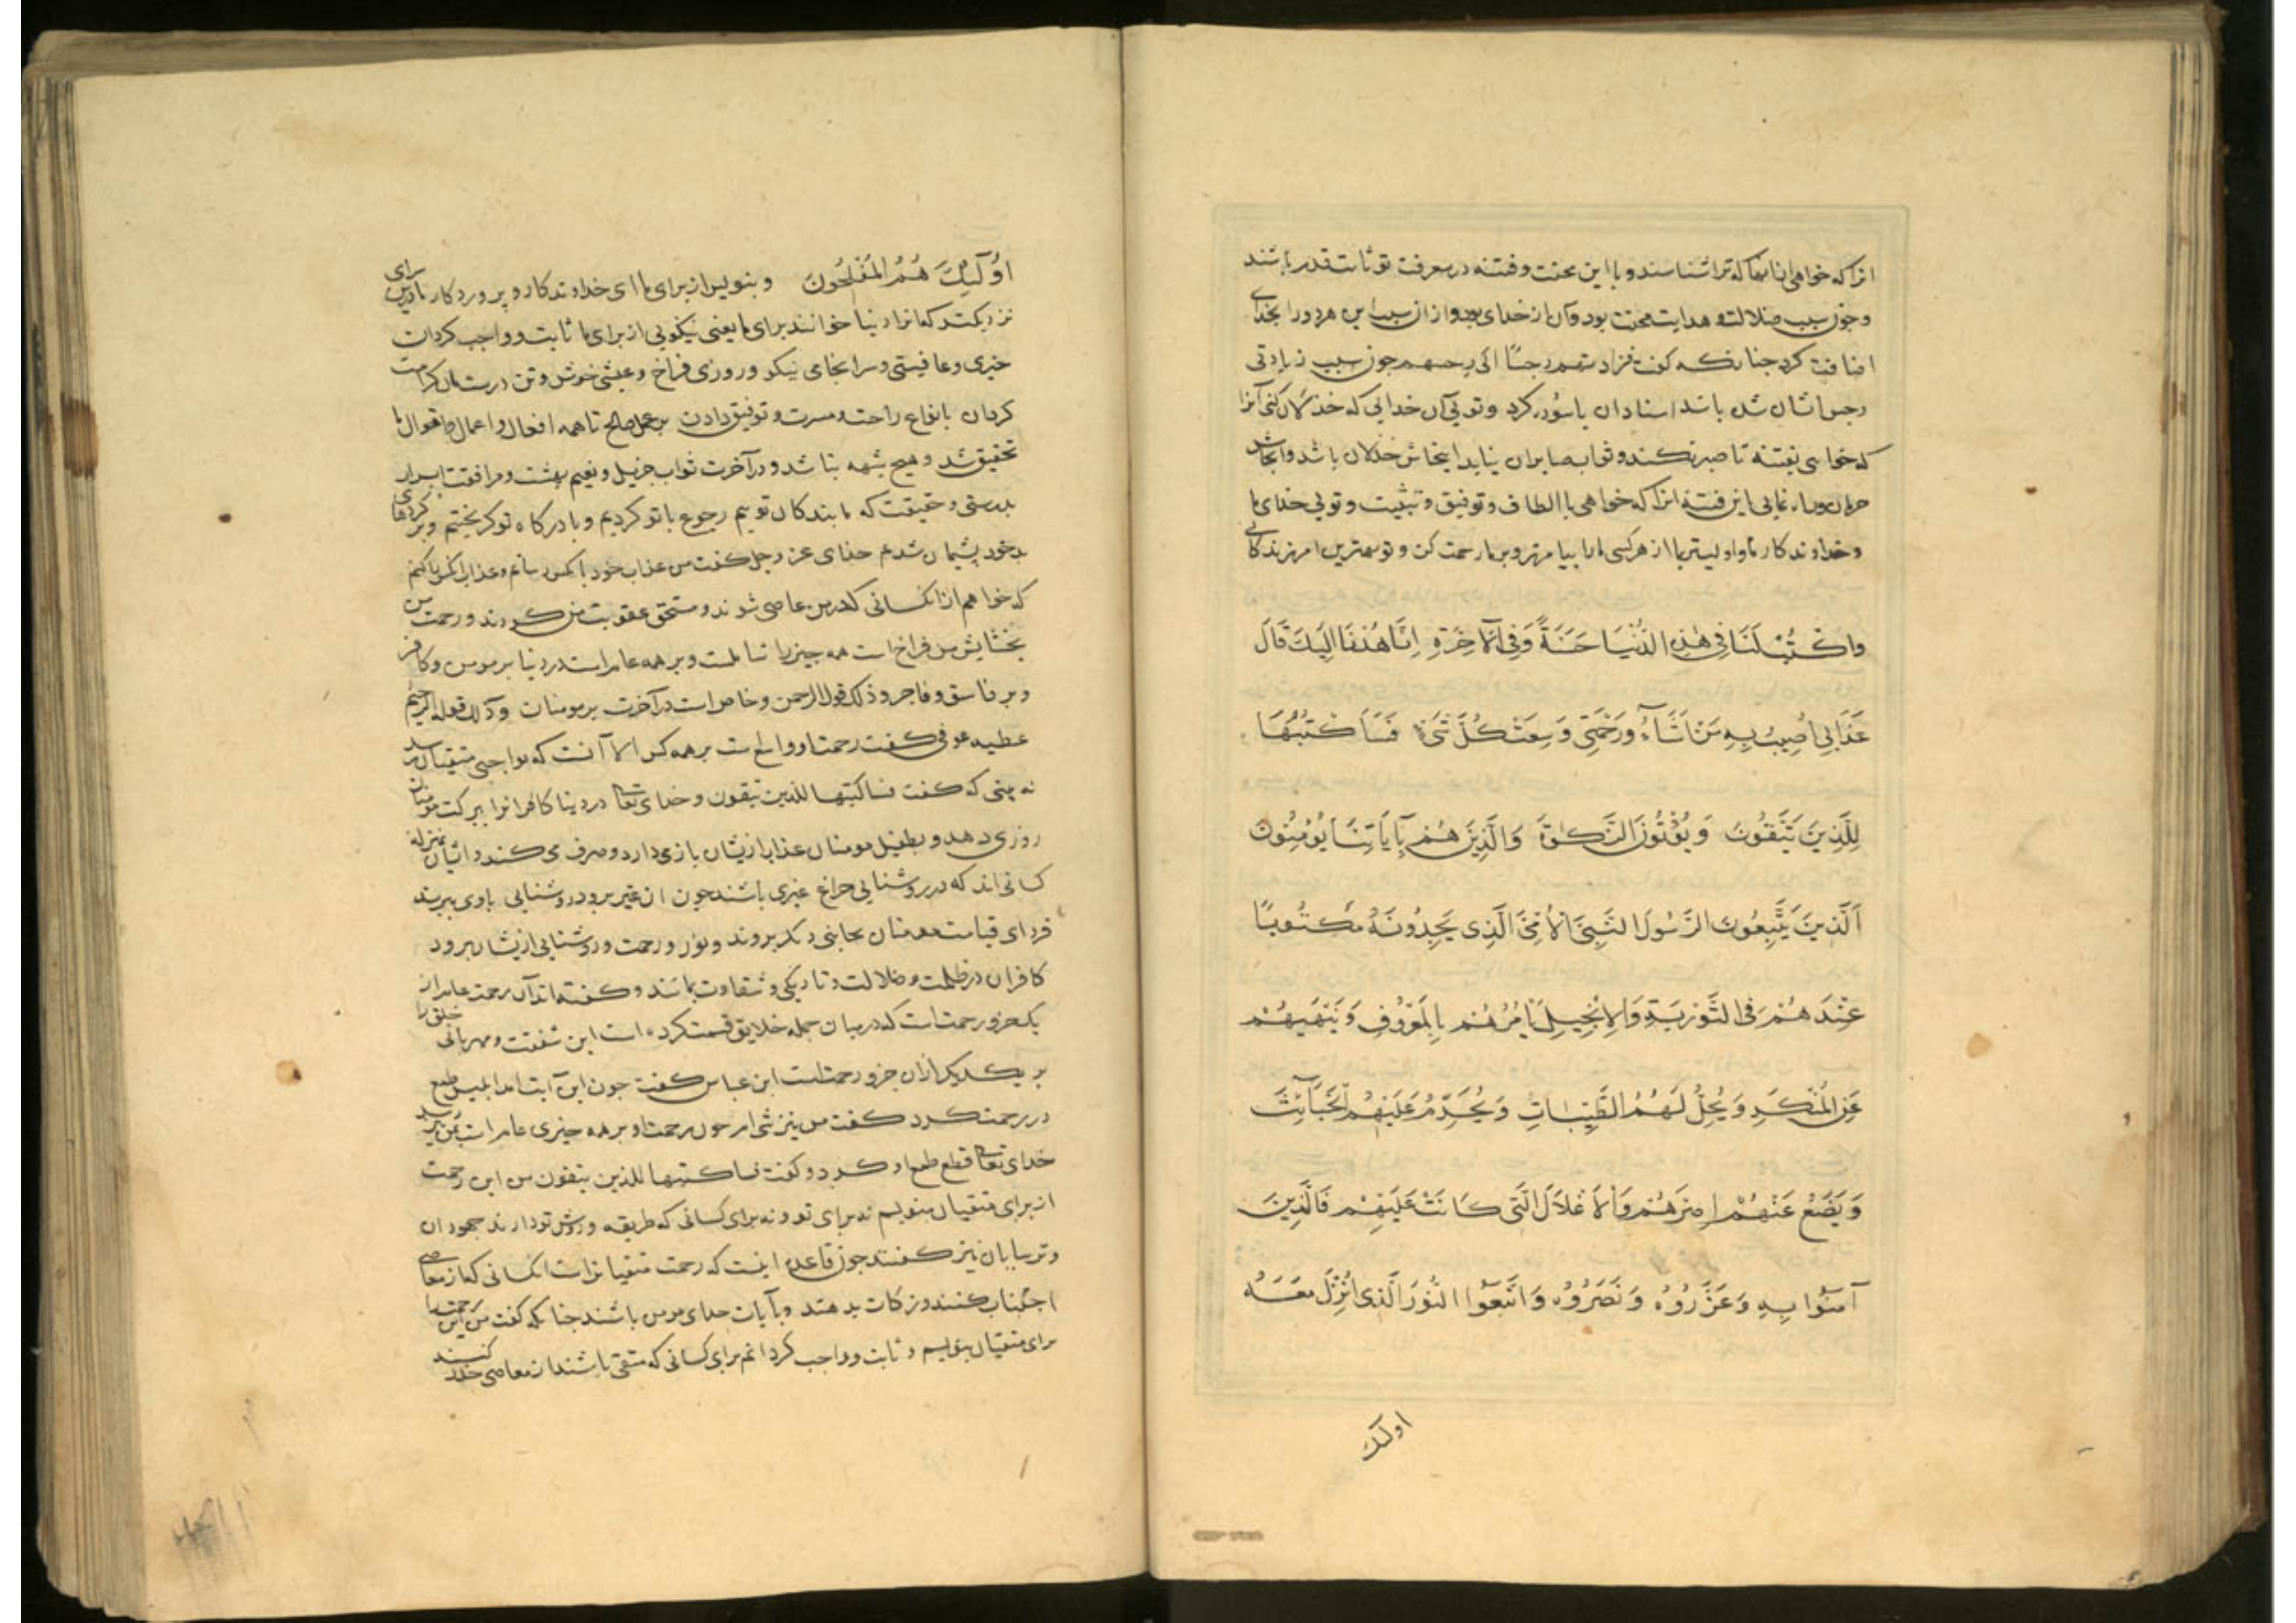 انرا که خواهی تا ترا نشناسند و با این محنت و فتنه در معرفت تو ثابت قدم باشند
و چون سبب ضلالت و هدایت محنت بود و آن از خدای بود و از آن سبب این هر دو را بخدای
اضافت کرد جنانکه گفت فزادتهم رجسا الی رجسهم جون سبب زیادتی
رجس اشان شد باشد اسناد آن با سوره کرد و تویی آن خدایی که خذلان کنی آنرا
که خواهی بفتنه تا صبر نکند و ثواب صابران نیابد اینجاش خذلان باشد و آنجاش
حرمان و راه نمایی باین فتنه انرا که خواهی با الطاف و توفیق و تثبیت و تویی خدای ما
و خداوندکار ما و اولیتر بما از هر کسی ما را بیامرز و بر ما رحمت کن و تو بهترین امرزندکانی
وَاكْتُبْ لَنَا فِی هٰذِهِ الدُّنْيَا حَسَنَةً وَفِی الْآخِرَةِ اِنَّا هُدْنَا اِلَيْكَ قَالَ
عَذَابِی اُصِيبُ بِهِ مَنْ اَشَاءُ وَرَحْمَتِی وَسِعَتْ كُلَّ شَیْءٍ فَسَاَكْتُبُهَا
لِلَّذِينَ يَتَّقُونَ وَيُؤْتُونَ الزَّكٰوةَ وَالَّذِينَ هُمْ بِآيَاتِنَا يُؤْمِنُونَ
اَلَّذِينَ يَتَّبِعُونَ الرَّسُولَ النَّبِیَّ الْاُمِّیَّ الَّذِی يَجِدُونَهُ مَكْتُوبًا
عِنْدَهُمْ فِی التَّوْرٰيةِ وَالْاِنْجِيلِ يَاْمُرُهُمْ بِالْمَعْرُوفِ وَيَنْهَيهُمْ
عَنِ الْمُنْكَرِ وَيُحِلُّ لَهُمُ الطَّيِّبَاتِ وَيُحَرِّمُ عَلَيْهِمُ الْخَبَآئِثَ
وَيَضَعُ عَنْهُمْ اِصْرَهُمْ وَالْاَغْلَالَ الَّتِی كَانَتْ عَلَيْهِمْ فَالَّذِينَ
آمَنُوا بِهِ وَعَزَّرُوهُ وَنَصَرُوهُ وَاتَّبَعُوا النُّورَ الَّذِی اُنْزِلَ مَعَهُ
اولئک
اُولٰٓئِكَ هُمُ الْمُفْلِحُونَ و بنویس از برای ما ای خداوندکار و پروردکار ما درین سرای
نزدیکتر که انرا دنیا خوانند برای ما یعنی نیکویی از برای ما ثابت و واجب کردان
خیری و عافیتی و سرانجامی نیکو و روزی فراخ و عیشی خوش و تن درست مان کرامت
کردان بانواع راحت و مسرت و توفیق دادن بر عمل صالح تا همه افعال و اعمال و اقوال ما
تحقیق شد و هیچ شبهه نباشد و در آخرت ثواب جزیل و نعیم بهشت و مرافقت ابرار
بدرستی و حقیقت که ما بندکان توییم رجوع با تو کردیم و با درکاه تو کریختیم و بر کردهای
بد خود پشیمان شدیم خدای عز و جل گفت من عذاب خود بآنکس رسانم و عذاب آنکس را کنم
که خواهم از آنکسانی که در من عاصی شوند و مستحق عقوبت من کردند و رحمت من
بخشایش من فراخ است همه چیز را شاملست و بر همه عام است در دنیا بر مومن و کافر
و بر فاسق و فاجر و ذلک قوله الرحمن و خاص است در آخرت بر مومنان و ذلک قوله الرحیم
عطیه عوفی گفت رحمت او واسع است بر همه کس الا آنست که بواجبی متقیان رسد
نه بینی که گفت فساکتبها للذین یتقون و خدای تعالی در دنیا کافرانرا ببرکت مومنان
روزی دهد و بطفیل مومنان عذاب ازیشان باز می دارد و صرف می کند و ایشان بمنزله
کسانی اند که در روشنایی چراغ غیری باشند چون ان غیر برود روشنایی با وی ببرند
فردای قیامت مومنان بجانبی دیکر بروند و نور و رحمت و روشنایی ازیشان برود
کافران در ظلمت و ضلالت و تاریکی و شقاوت بمانند و گفته اند آن رحمت عام از
یک جزو رحمت است که در میان جمله خلایق قسمت کرده است این شفقت و مهربانی خلق را
بر یکدیکر از ان جزو رحمتست ابن عباس گفت جون این آیت امد ابلیس طمع
در رحمت کرد گفت من نیز شی ام جون رحمت او بر همه چیزی عام است بمن رسد
خدای تعالی قطع طمع او کرد و گفت فساکتبها للذین یتقون من این رحمت
از برای متقیان بنویسم نه برای تو و نه برای کسانی که طریقه و روش تو دارند جهودان
و ترسایان نیز گفتند جون قاعده اینست که رحمت متقیانراست انکسانی که از معاصی
اجتناب کنند و زکات بدهند و بآیات خدای مومن باشند جنانکه گفت من این رحمت را
برای متقیان بنویسم و ثابت و واجب کردانم برای کسانی که متقی باشند از معاصی حذر کنند